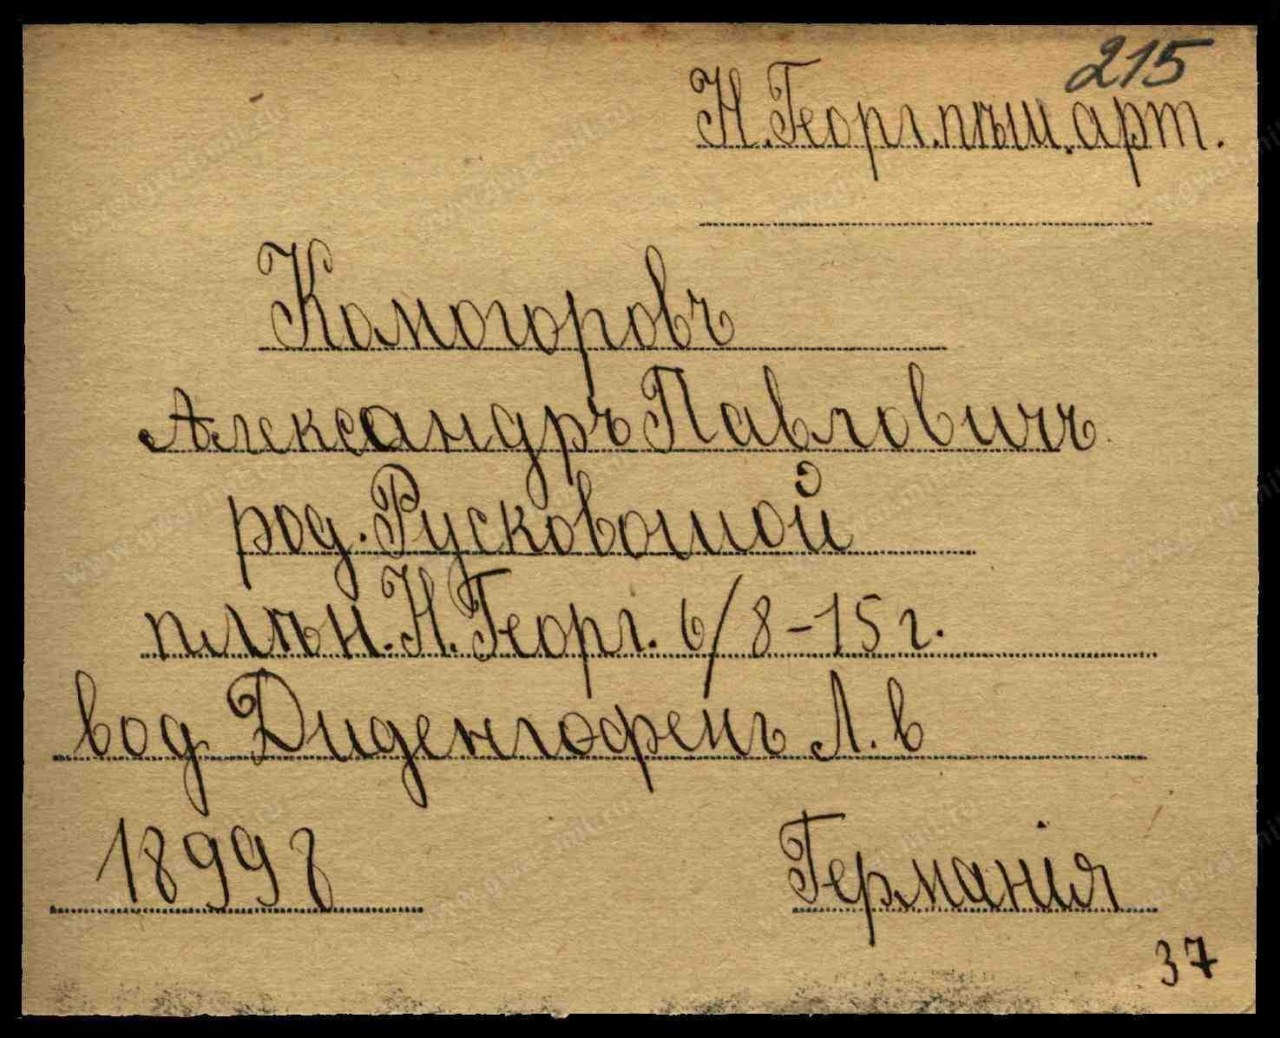 215
Н. Георг. пѣш. арт.
Комогоровъ
Александръ Павловичъ
род. Русковошмой
плѣн. Н. Георг. 6/8-15 г.
вод Диденгофенъ Л. в
18998
Германія
37